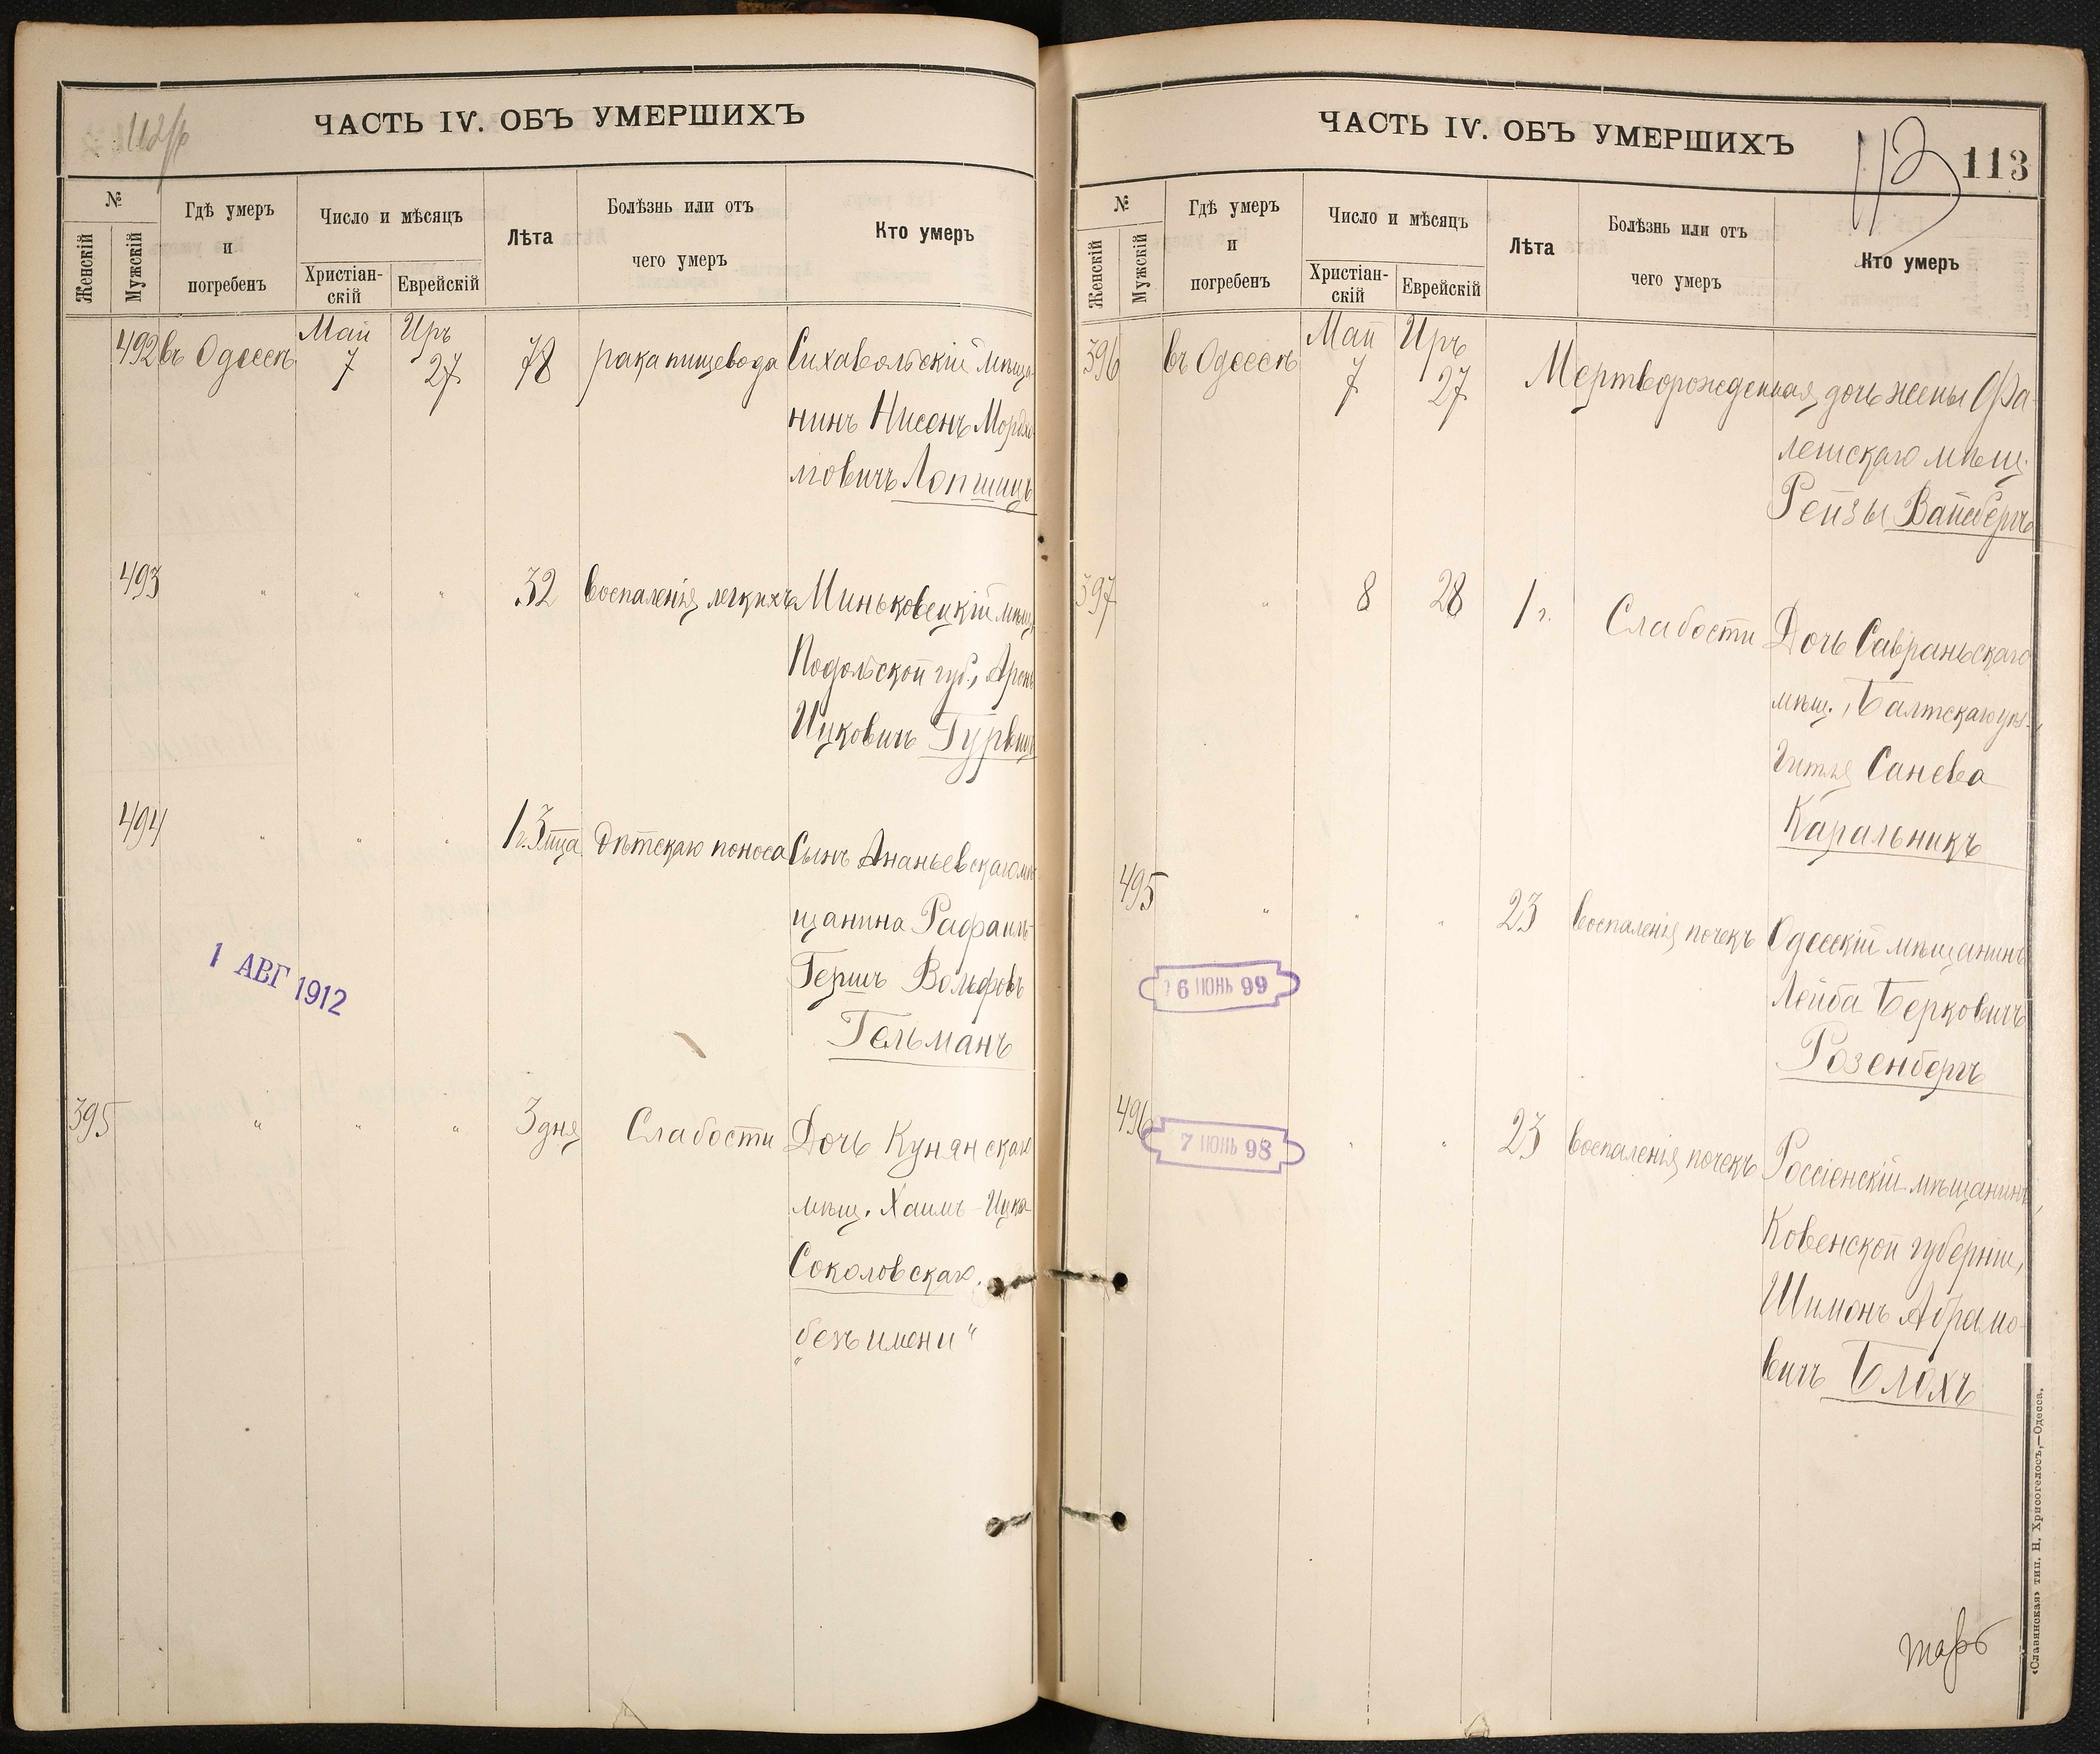 112/б
ЧАСТЬ IV. ОБЪ УМЕРШИХЪ
№
Женскій
Мужскій
Гдѣ умеръ
и
погребенъ
Число и мѣсяцъ
Христіан-
скій
Еврейскій
Лѣта
Болѣзнь или отъ
чего умеръ
Кто умеръ
492 въ Одессѣ Май 7 Иръ 27 78 рака пищевода Сихавольскій мѣща-
нинъ Нисенъ Мордко-
мовичъ Лопшицъ
493 " " " 32 воспаленія легкихъ Миньковецкій мѣщ.
Подольской губ., Аронъ
Ицковичъ Гурвицъ
494 " " " 1 г. 3 мца Дѣтскаго поноса Сынъ Ананьевскаго мѣ-
щанина Рафаилъ-
Гершъ Вольфовъ
Гельманъ
1 АВГ 1912
395 " " " 3 дня Слабости Дочь Кунянскаго
мѣщ. Хаимъ-Ицка
Соколовскаго.
"безъ имени"
ЧАСТЬ IV. ОБЪ УМЕРШИХЪ
113
113
№
Женскій
Мужскій
Гдѣ умеръ
и
погребенъ
Число и мѣсяцъ
Христіан-
скій
Еврейскій
Лѣта
Болѣзнь или отъ
чего умеръ
Кто умеръ
396 въ Одессѣ Май 7 Иръ 27 Мертворожденная дочь жены Фа-
лешскаго мѣщ.
Рейзы Вайсбергъ
397 " 8 28 1 г. Слабости Дочь Савраньскаго
мѣщ., Балтскаго уѣз.,
Гитля Санева
Каральникъ
495 " " " 23 воспаленія почекъ Одесскій мѣщанинъ
Лейба Берковичъ
Розенбергъ
6 ІЮНЬ 99
496 " " 23 воспаленія почекъ Россіенскій мѣщанинъ,
Ковенской губерніи,
Шимонъ Абрамо-
вичъ Блохъ
7 ІЮНЬ 98
«Славянская» тип. Н. Хрисогелосъ,—Одесса.